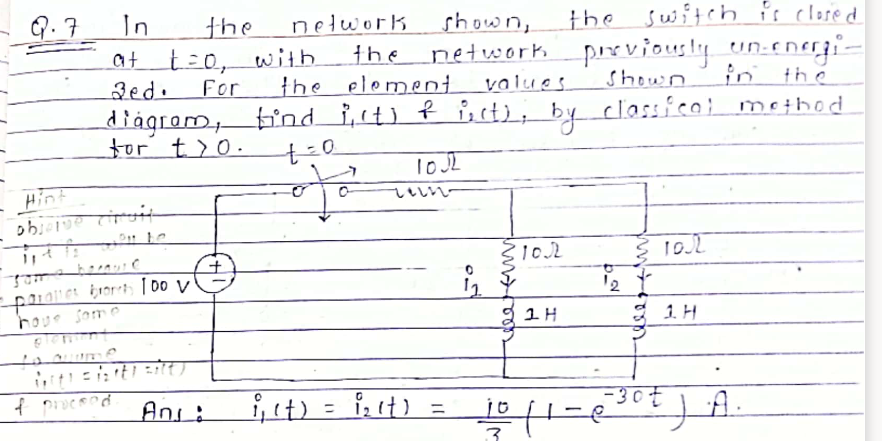 Q.7 In the network shown, the switch is closed
at t=0, with the network previously un-energi-
zed. For the element values shown in the
diagram, find i₁(t) & i₂(t), by classical method
for t>0.
t=0
10Ω
Hint
observe circuit
i₁ & i₂ will be
same because
parallel branch
have same
element
so assume
i₁(t) = i₂(t) = i(t)
& proceed
100 V
+
-
i₁
10Ω
1H
i₂
10Ω
1H
Ans: i₁(t) = i₂(t) = 10/3 (1 - e^-30t) A.